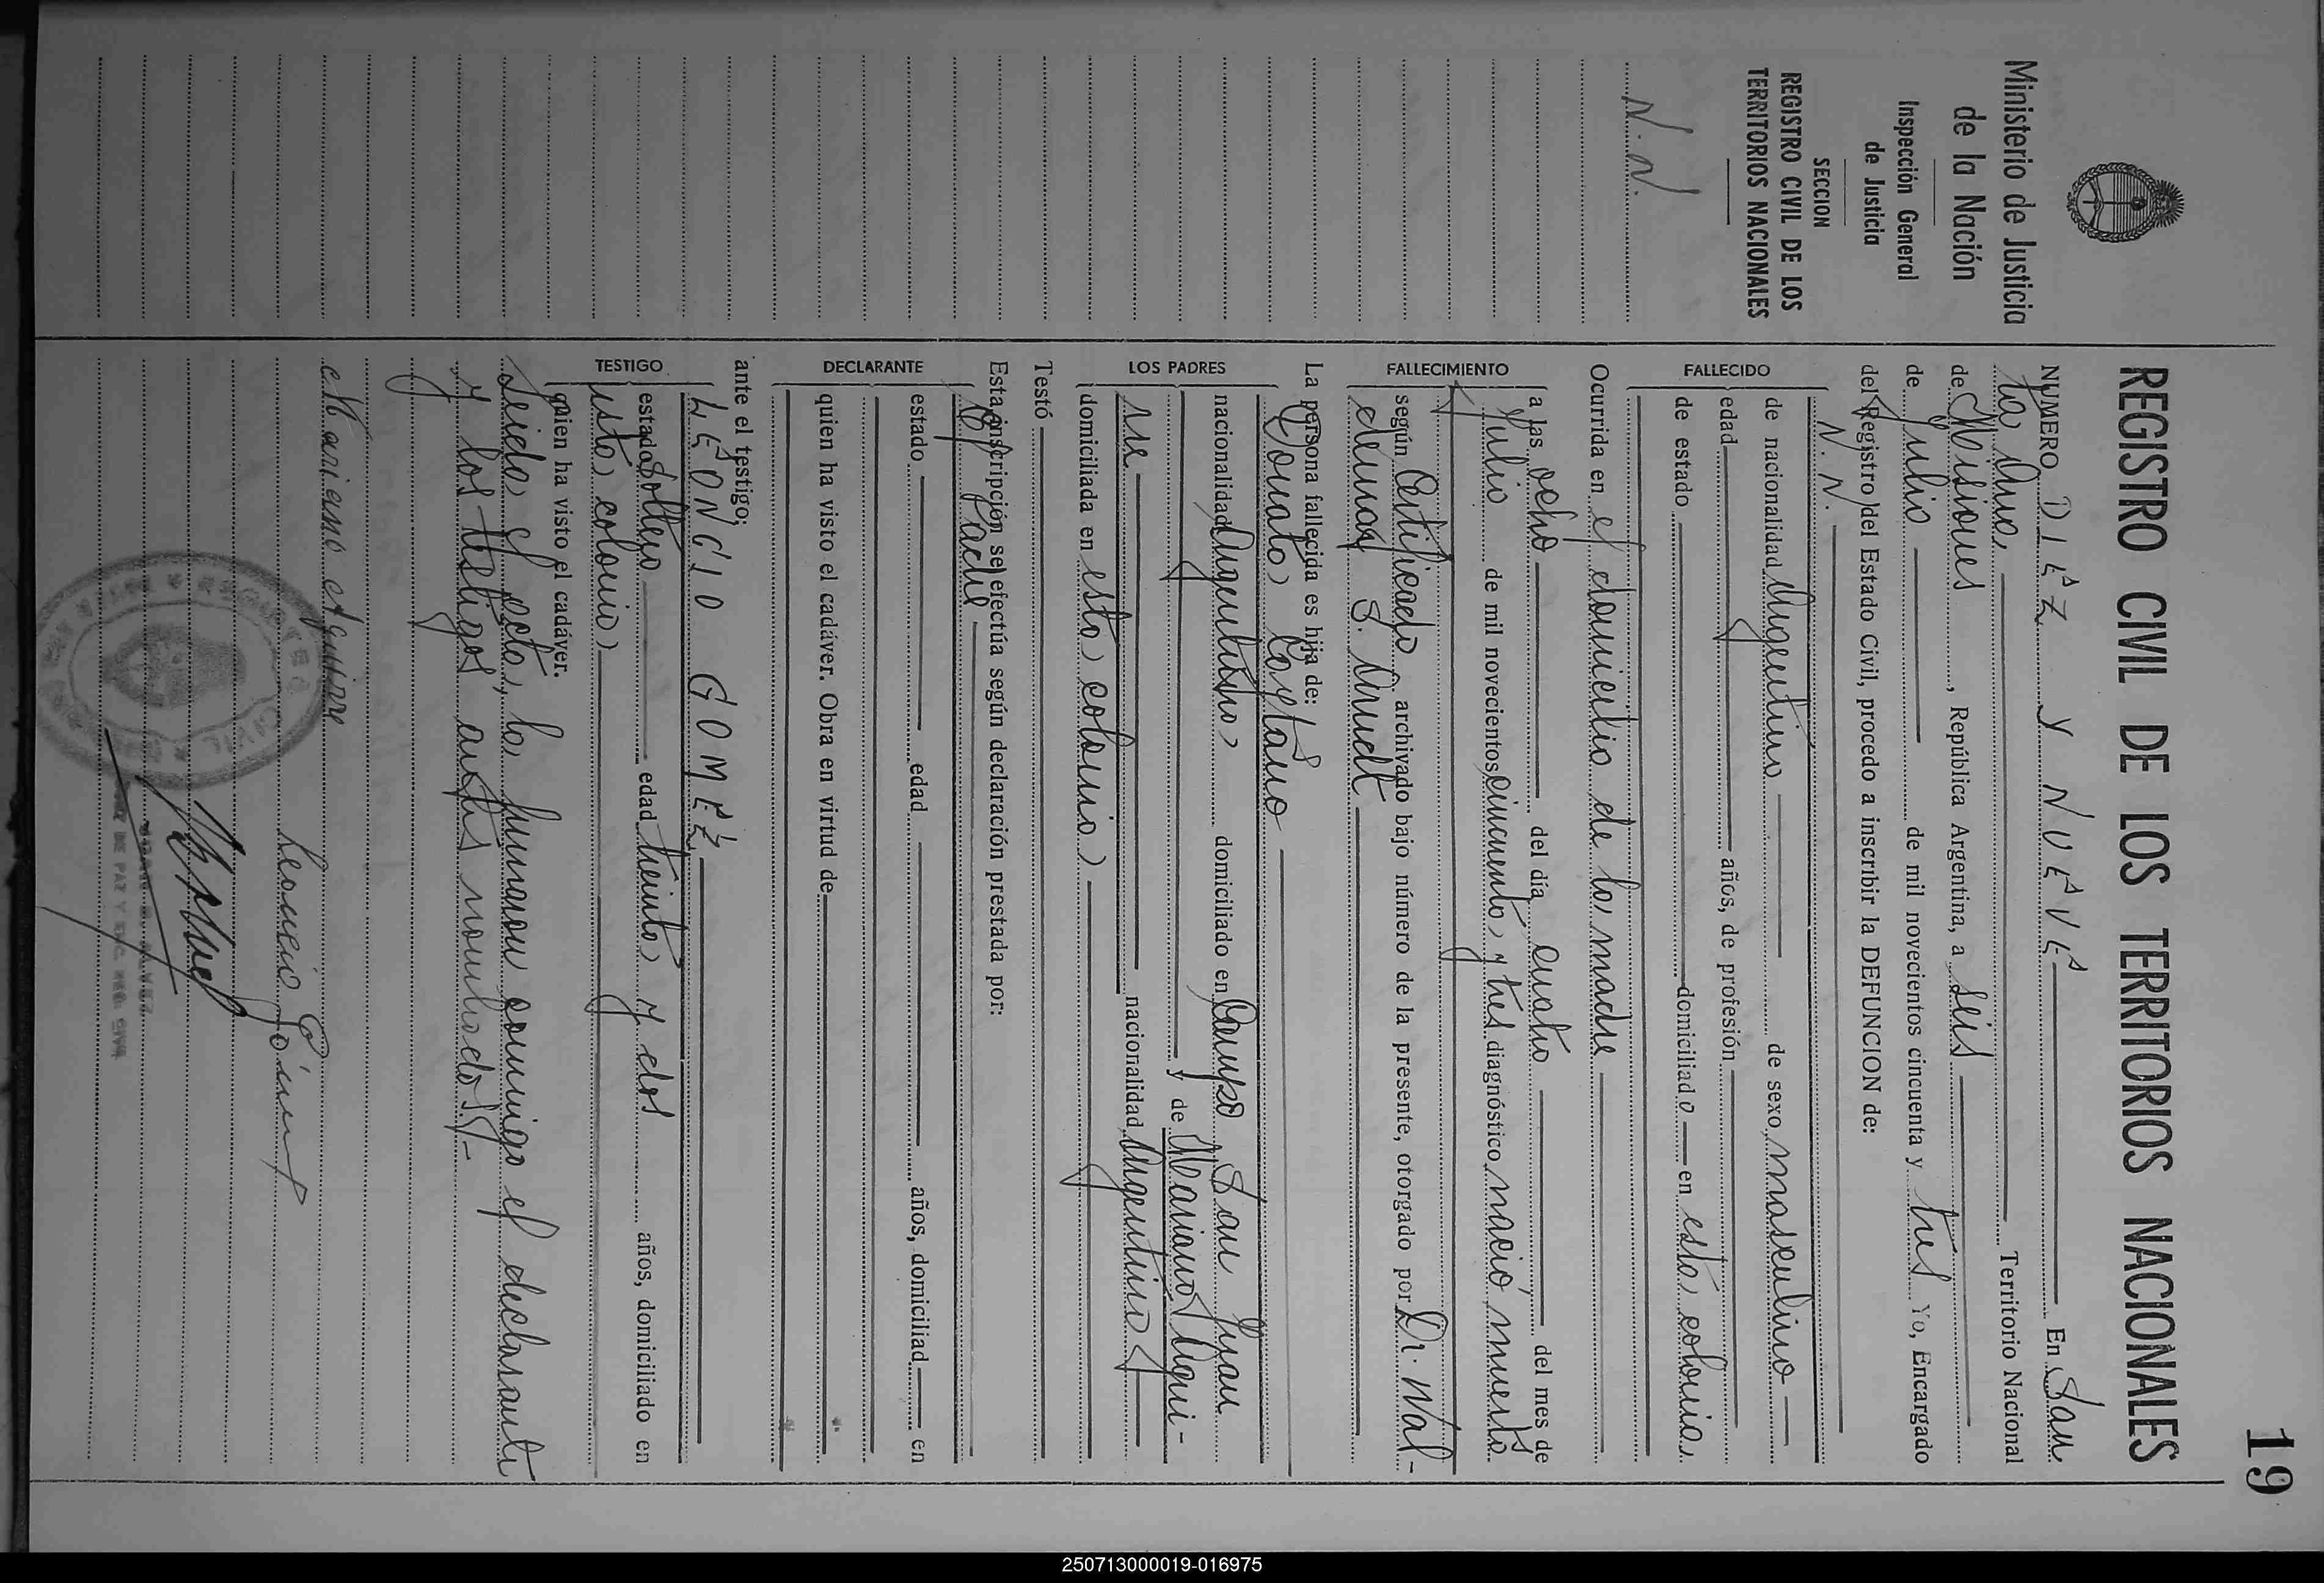 19
REGISTRO CIVIL DE LOS TERRITORIOS NACIONALES
Ministerio de Justicia
de la Nación
Inspección General
de Justicia
SECCION
REGISTRO CIVIL DE LOS
TERRITORIOS NACIONALES
N. N.
NUMERO DIEZ Y NUEVE En San
ta Ana Territorio Nacional
de Misiones, República Argentina, a seis
de Julio de mil novecientos cincuenta y tres Yo, Encargado
del Registro del Estado Civil, procedo a inscribir la DEFUNCION de:
N. N.
FALLECIDO
de nacionalidad Argentino de sexo masculino
edad años, de profesión
de estado domiciliado en esta colonia
Ocurrida en el domicilio de la madre
FALLECIMIENTO
a las ocho del día cuatro del mes de
Julio de mil novecientos cincuenta y tres diagnóstico nació muerto
según Certificado archivado bajo número de la presente, otorgado por Dr. Wal-
demar S. Arndt
La persona fallecida es hija de:
LOS PADRES
Donato Caytano
nacionalidad Argentino domiciliado en Campo San Juan
y de Mariana Agui-
rre nacionalidad Argentina
domiciliada en esta colonia
Testó
Esta inscripción se efectúa según declaración prestada por:
DECLARANTE
El Padre
estado edad años, domiciliad en
quien ha visto el cadáver. Obra en virtud de
ante el testigo;
TESTIGO
LEONCIO GOMEZ
estado Soltero edad treinta y dos años, domiciliado en
esta colonia
quien ha visto el cadáver.
Leida el acta, la firmaron conmigo el declarante
y los testigos antes nombrados
Mariano Aguirre
Leoncio Gómez
250713000019-016975